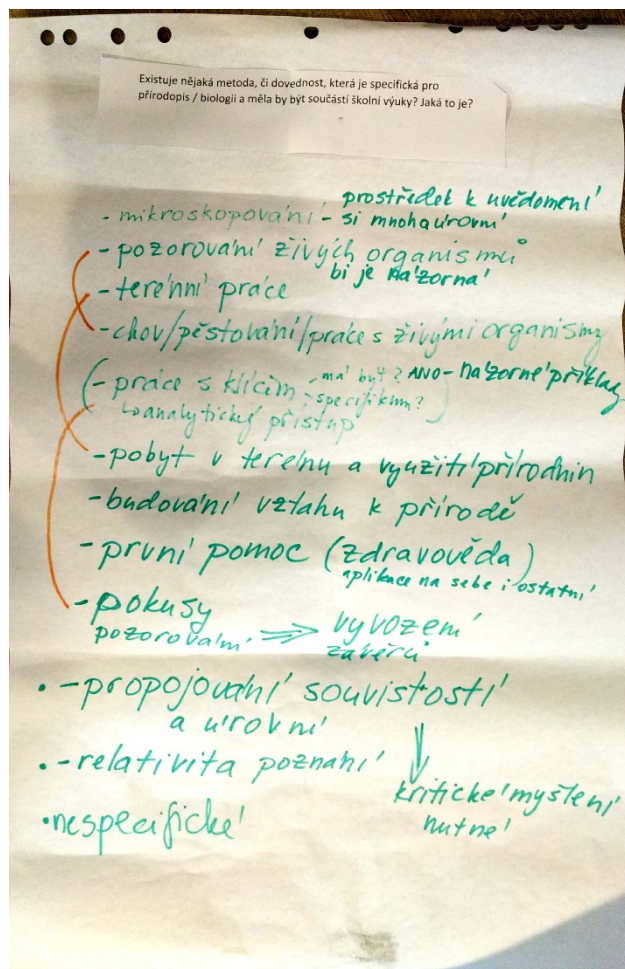 Existuje nějaká metoda, či dovednost, která je specifická pro
přírodopis / biologii a měla by být součástí školní výuky? Jaká to je?
prostředek k uvědomení
- mikroskopování - si mnohaúrovní
- pozorování živých organismů
bi je názorná
- terénní práce
- chov/pěstování/práce s živými organismy
(- práce s klíčem - má být? ANO - názorné příklady
- specifikum?
↳ analytický přístup)
- pobyt v terénu a využití přírodnin
- budování vztahu k přírodě
- první pomoc (zdravověda)
aplikace na sebe i ostatní
- pokusy
pozorování ⇒ vyvození
závěrů
• - propojování souvistostí
a úrovní
• - relativita poznání
kritické myšlení
nutné
• nespecifické